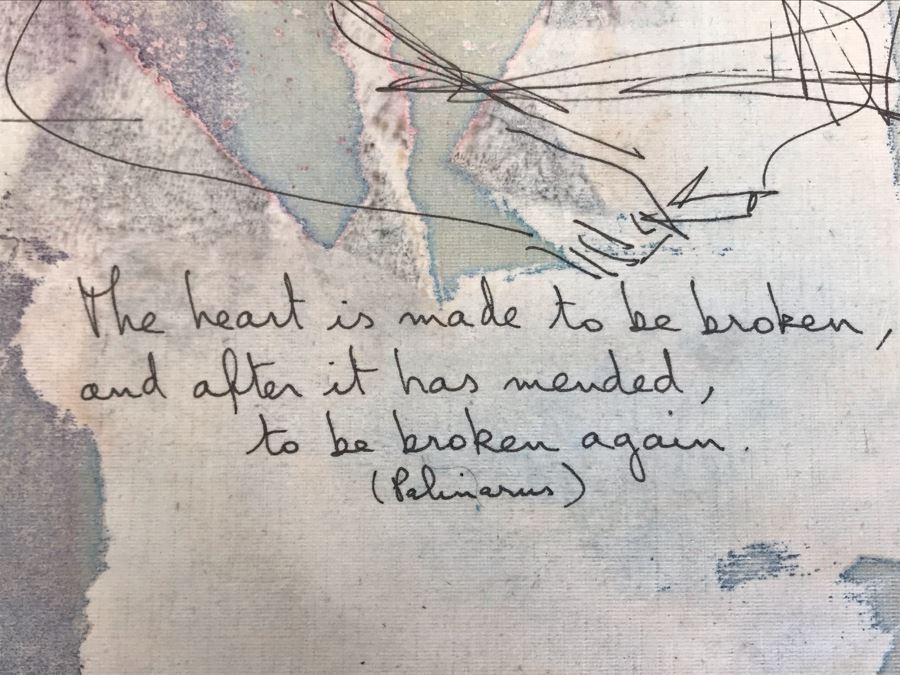 The heart is made to be broken,
and after it has mended,
to be broken again.
(Palinarus)